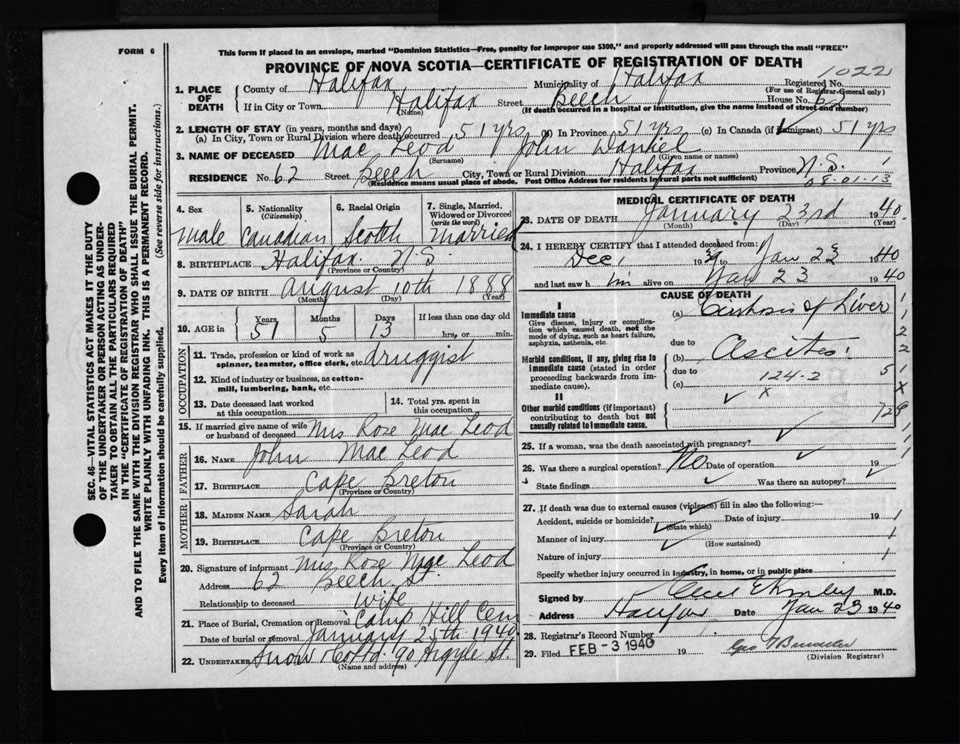 FORM 6
This form if placed in an envelope, marked "Dominion Statistics—Free, penalty for improper use $300," and properly addressed will pass through the mail "FREE"
PROVINCE OF NOVA SCOTIA—CERTIFICATE OF REGISTRATION OF DEATH
1022
1. PLACE OF DEATH
County of Halifax Municipality of Halifax Registered No.
(For use of Registrar-General only)
If in City or Town Halifax Street Beech House No. 62
(Name) (If death occurred in a hospital or institution, give the name instead of street and number)
2. LENGTH OF STAY (in years, months and days)
(a) In City, Town or Rural Division where death occurred 51 yrs (b) In Province 51 yrs (c) In Canada (if immigrant) 51 yrs
3. NAME OF DECEASED Mac Leod John Daniel
(Surname) (Given name or names)
RESIDENCE No. 62 Street Beech City, Town or Rural Division Halifax Province N.S. 1
(Residence means usual place of abode. Post Office Address for residents in rural parts not sufficient)
08-01-13
4. Sex
Male
5. Nationality (Citizenship)
Canadian
6. Racial Origin
Scotch
7. Single, Married, Widowed or Divorced (write the word)
Married
8. BIRTHPLACE Halifax N.S.
(Province or Country)
9. DATE OF BIRTH August 10th 1888
(Month) (Day) (Year)
10. AGE in Years 51 Months 5 Days 13 If less than one day old
hrs. or min.
OCCUPATION
11. Trade, profession or kind of work as spinner, teamster, office clerk, etc. druggist
12. Kind of industry or business, as cotton-mill, lumbering, bank, etc.
13. Date deceased last worked at this occupation
14. Total yrs. spent in this occupation
15. If married give name of wife or husband of deceased Mrs Rose Mac Leod
FATHER
16. NAME John Mac Leod
17. BIRTHPLACE Cape Breton
(Province or Country)
MOTHER
18. MAIDEN NAME Sarah
19. BIRTHPLACE Cape Breton
(Province or Country)
20. Signature of informant Mrs Rose Mac Leod
Address 62 Beech St.
Relationship to deceased wife
21. Place of Burial, Cremation or Removal Camp Hill Cem
Date of burial or removal January 25th 1940
22. UNDERTAKER Snow & Co Ltd. 90 Argyle St.
(Name and address)
MEDICAL CERTIFICATE OF DEATH
23. DATE OF DEATH January 23rd 1940
(Month) (Day) (Year)
24. I HEREBY CERTIFY that I attended deceased from:
Dec 1 1939 to Jan 23 1940
and last saw him alive on Jan 23 1940
CAUSE OF DEATH
I
Immediate cause
Give disease, injury or complication which caused death, not the mode of dying, such as heart failure, asphyxia, asthenia, etc.
(a) Cirrhosis of Liver
due to
Morbid conditions, if any, giving rise to immediate cause (stated in order proceeding backwards from immediate cause).
(b) Ascites
due to
(c) 124-2
II
Other morbid conditions (if important) contributing to death but not causally related to immediate cause.
1
1
2
2
5 1
X
729
25. If a woman, was the death associated with pregnancy?
26. Was there a surgical operation? No Date of operation 19
State findings Was there an autopsy?
27. If death was due to external causes (violence) fill in also the following:
Accident, suicide or homicide? Date of injury 19
(State which)
Manner of injury
(How sustained)
Nature of injury
Specify whether injury occurred in industry, in home, or in public place
Signed by Cecil E Kinley M.D.
Address Halifax Date Jan 23 1940
28. Registrar's Record Number
29. Filed FEB -3 1940 19
(Division Registrar)
SEC. 46—VITAL STATISTICS ACT MAKES IT THE DUTY
OF THE UNDERTAKER OR PERSON ACTING AS UNDER-
TAKER TO OBTAIN ALL THE PARTICULARS REQUIRED
IN THE "CERTIFICATE OF REGISTRATION OF DEATH"
AND TO FILE THE SAME WITH THE DIVISION REGISTRAR WHO SHALL ISSUE THE BURIAL PERMIT.
WRITE PLAINLY WITH UNFADING INK. THIS IS A PERMANENT RECORD.
Every item of information should be carefully supplied. (See reverse side for instructions.)